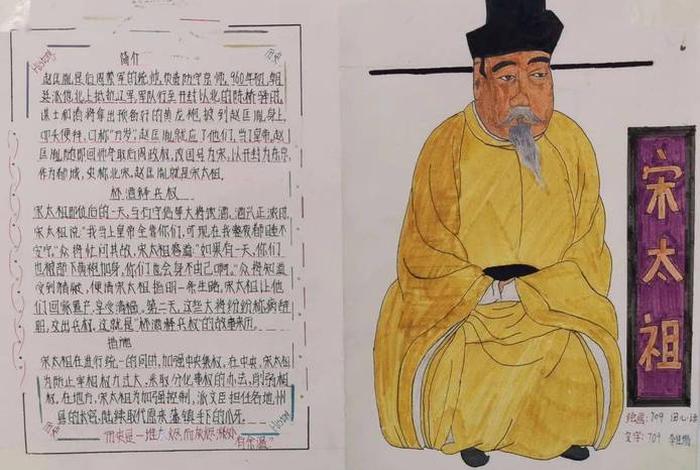 History
历史
简介
赵匡胤是后周禁军的统帅,负责防守京师。960年初,朝
廷派他北上抵抗辽军,军队行至开封以北的陈桥驿时,
谋士和商将拿出预备好的黄龙袍,披到赵匡胤身上,
叩头便拜,口称“万岁”。赵匡胤就应了他们,当了皇帝,赵
匡胤随即回师夺取后周政权,改国号为宋,以开封为东京,
作为都城,史称北宋。赵匡胤就是宋太祖。
杯酒释兵权
宋太祖即位后的一天,与石守信等大将饮酒。酒兴正浓时,
宋太祖说“我当上皇帝全靠你们,可现在我整夜都睡不
安宁。”众将忙问其故,宋太祖答道:“如果有一天,你们
也被部下黄袍加身,你们也会身不由己啊。”众将知道
受到猜疑,便请宋太祖指明一条生路,宋太祖让他
们回家置产,享受清福。第二天,这些大将纷纷称病辞
职,交出兵权,这就是“杯酒释兵权”的故事来历。
措施
宋太祖在进行统一的同时,加强中央集权。在中央,宋太祖
为防止宰相权力过大,采取分化事权的办法,削弱相
权。在地方,宋太祖为加强控制,派文臣担任各地州
县的长官,陆续取代原来藩镇手下的爪牙。
历史
History
历史是一堆灰烬,而灰烬深处
有余温。
宋太祖
绘画:709
文字:709